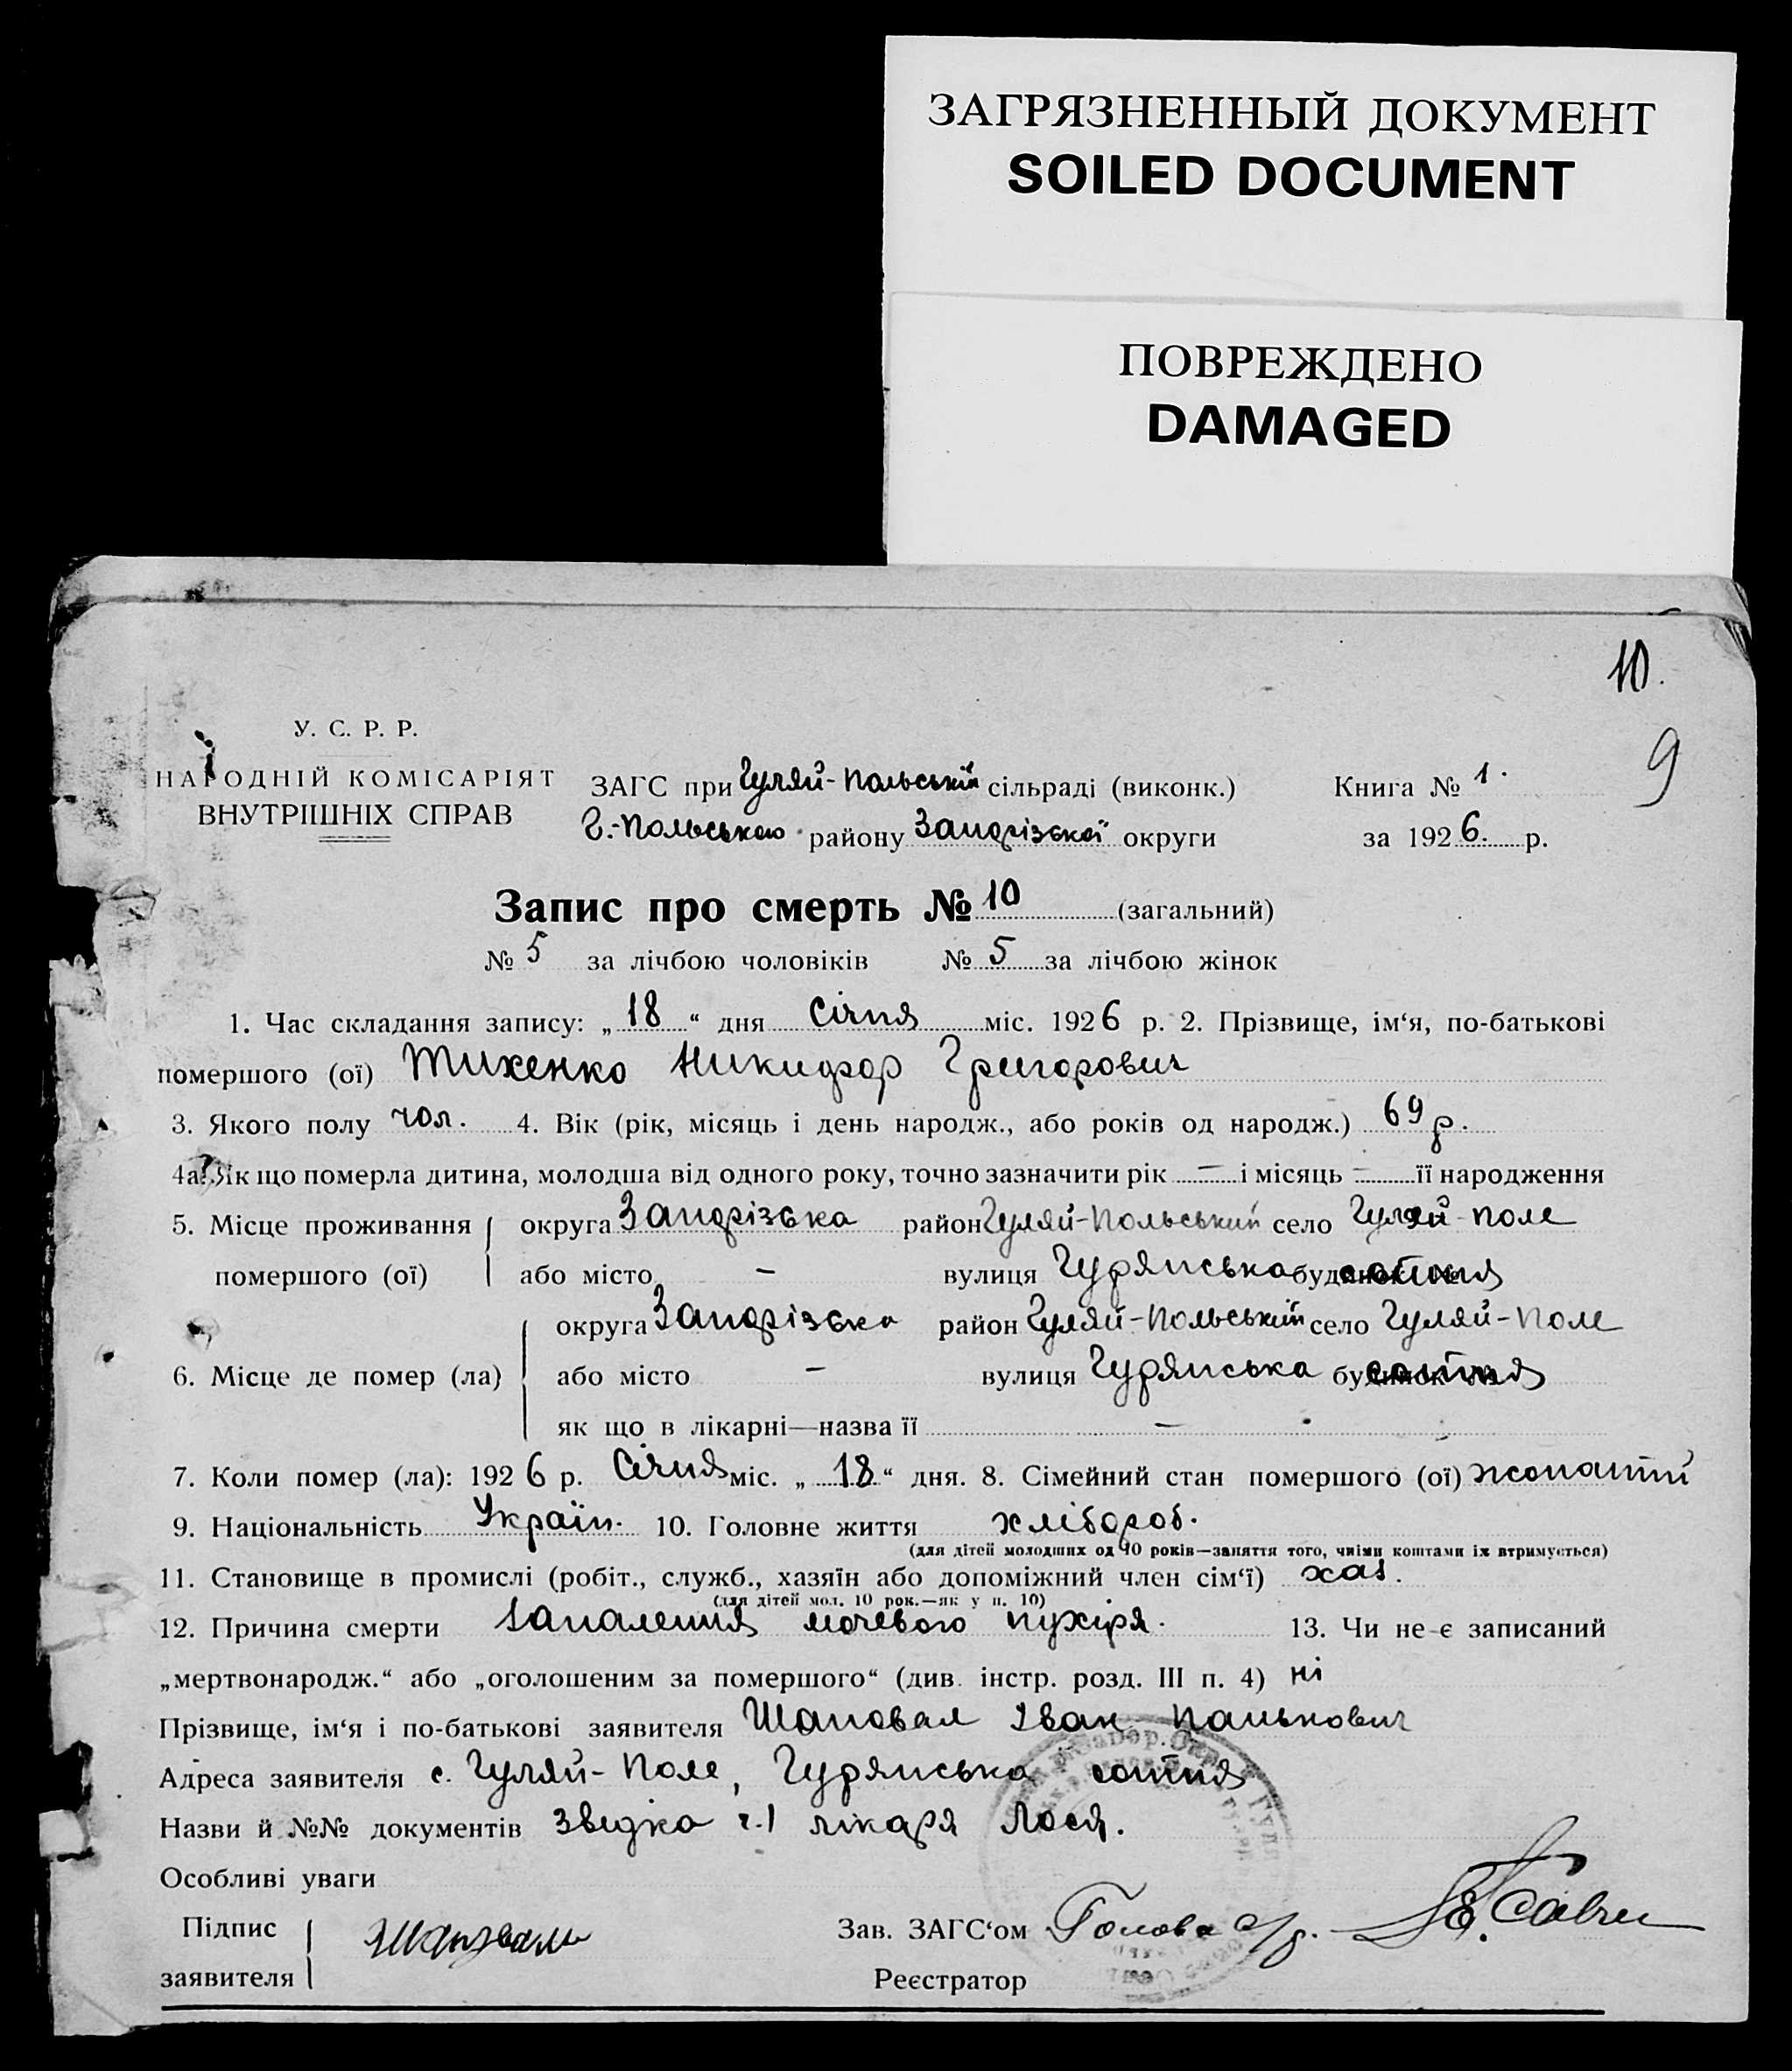 ЗАГРЯЗНЕННЫЙ ДОКУМЕНТ
SOILED DOCUMENT
ПОВРЕЖДЕНО
DAMAGED
10.
9
У. С. Р. Р.
НАРОДНІЙ КОМІСАРІЯТ
ВНУТРІШНІХ СПРАВ
ЗАГС при Гуляй-Польській сільраді (виконк.)
Г.-Польського району Запорізької округи
Книга № 1.
за 1926. р.
Запис про смерть № 10 (загальний)
№ 5 за лічбою чоловіків № 5 за лічбою жінок
1. Час складання запису: „18“ дня Січня міс. 1926 р. 2. Прізвище, ім‘я, по-батькові
помершого (ої) Тихенко Никифор Григорович
3. Якого полу чол. 4. Вік (рік, місяць і день народж., або років од народж.) 69 р.
4а. Як що померла дитина, молодша від одного року, точно зазначити рік — і місяць — її народження
5. Місце проживання округа Запорізька район Гуляй-Польський село Гуляй-Поле
помершого (ої) або місто – вулиця Гурянська будинок № сотня
округа Запорізька район Гуляй-Польський село Гуляй-Поле
6. Місце де помер (ла) або місто – вулиця Гурянська будинок № сотня
як що в лікарні—назва її —
7. Коли помер (ла): 1926 р. Січня міс. „18“ дня. 8. Сімейний стан помершого (ої) жонатий
9. Національність Україн. 10. Головне життя хлібороб.
(для дітей молодших од 10 років—заняття того, чиїми коштами їх втримується)
11. Становище в промислі (робіт., служб., хазяїн або допоміжний член сім‘ї) хаз.
(для дітей мол. 10 рок.—як у п. 10)
12. Причина смерти запалення мочевого пухіря. 13. Чи не є записаний
„мертвонародж.“ або „оголошеним за помершого“ (див. інстр. розд. III п. 4) ні
Прізвище, ім‘я і по-батькові заявителя Шаповал Іван Панькович
Адреса заявителя с. Гуляй-Поле, Гурянська сотня
Назви й №№ документів Звидка ч.1 лікаря Лося.
Особливі уваги
Підпис
заявителя Шаповал
Зав. ЗАГС‘ом Голова с/р.
Реєстратор